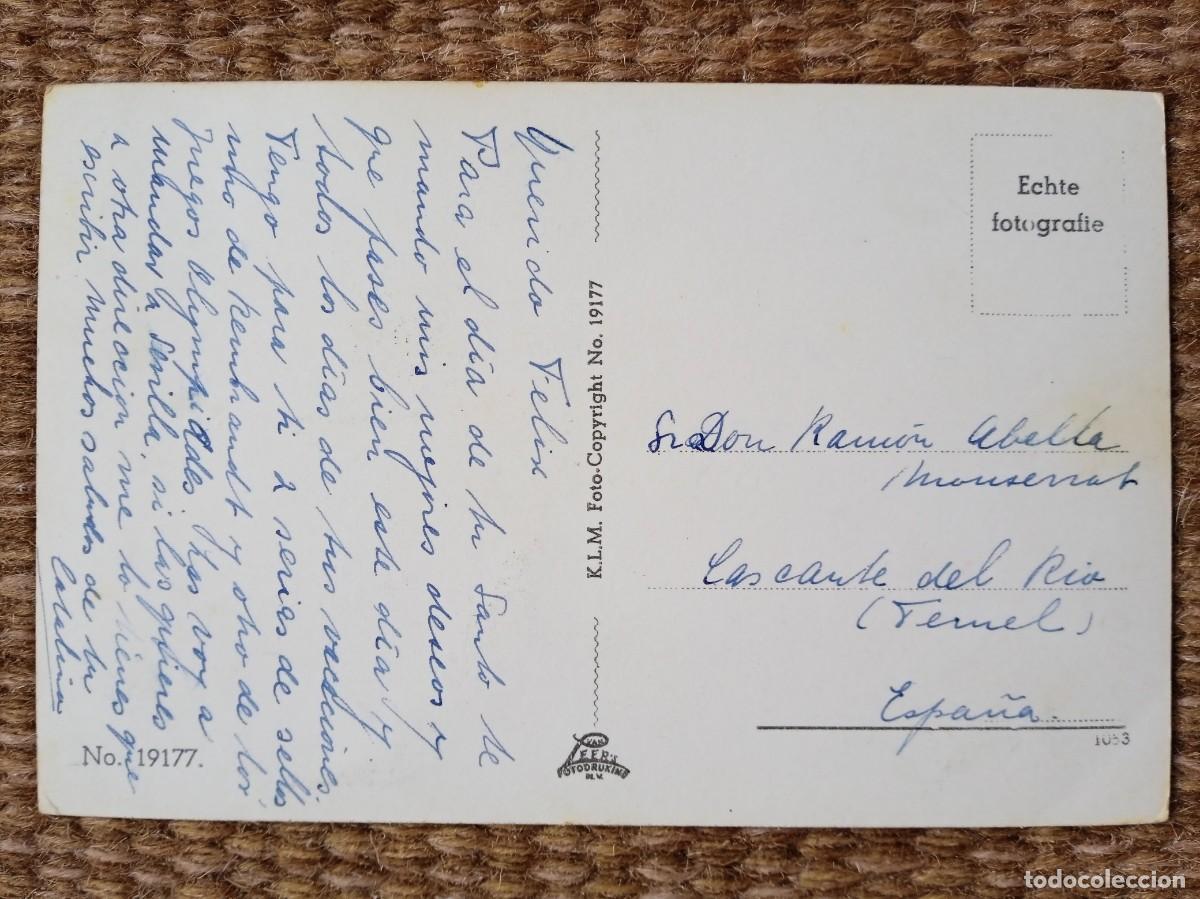 Querido Felix
Para el día de tu Santo te
mando mis mejores deseos y
que pases bien este día y
todos los dias de tus vacciones.
Tengo para ti 2 series de sellos
uno de Rembrandt y otro de los
Juegos Olympiades. Las voy a
mandar a Sevilla, si las quieres
a otra direccion me lo tienes que
escribir muchos saludos de tu
Catalina
No. 19177.
K.L.M. Foto-Copyright No. 19177
VAN
LEER'S
FOTODRUKIND
N.V.
Echte
fotografie
Don Ramón Abella
Monserrat
Cascante del Rio
(Teruel)
España.
1053
todocoleccion